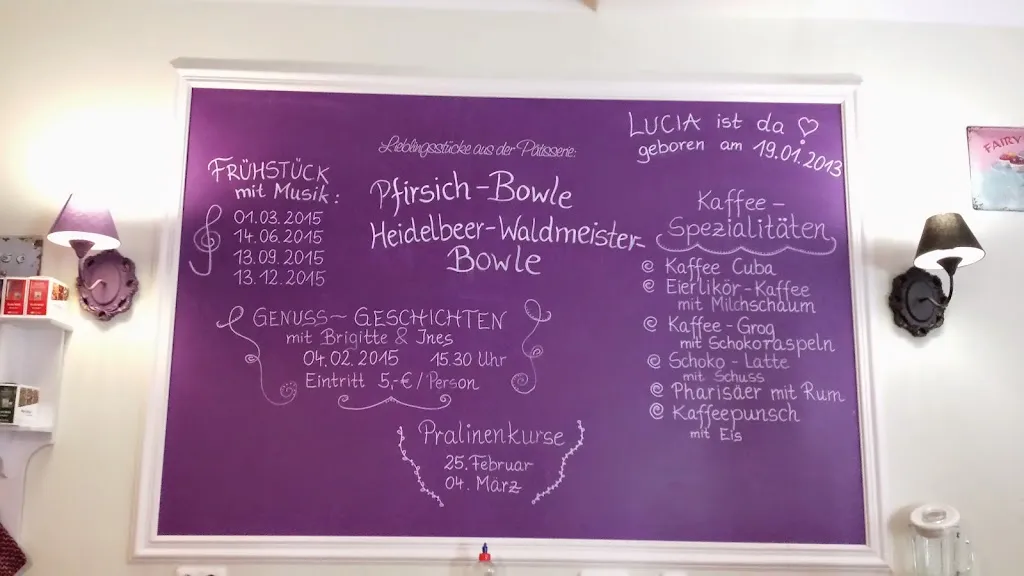 FRÜHSTÜCK
mit Musik:
01.03.2015
14.06.2015
13.09.2015
13.12.2015
Lieblingsstücke aus der Pâtisserie:
Pfirsich-Bowle
Heidelbeer-Waldmeister-
Bowle
LUCIA ist da
geboren am 19.01.2013
Kaffee-
Spezialitäten
Kaffee Cuba
Eierlikör-Kaffee
mit Milchschaum
Kaffee-Grog
mit Schokoraspeln
Schoko-Latte
mit Schuss
Pharisäer mit Rum
Kaffeepunsch
mit Eis
GENUSS~GESCHICHTEN
mit Brigitte & Ines
04.02.2015 15.30 Uhr
Eintritt 5,-€/Person
Pralinenkurse
25.Februar
04. März
FAIRY